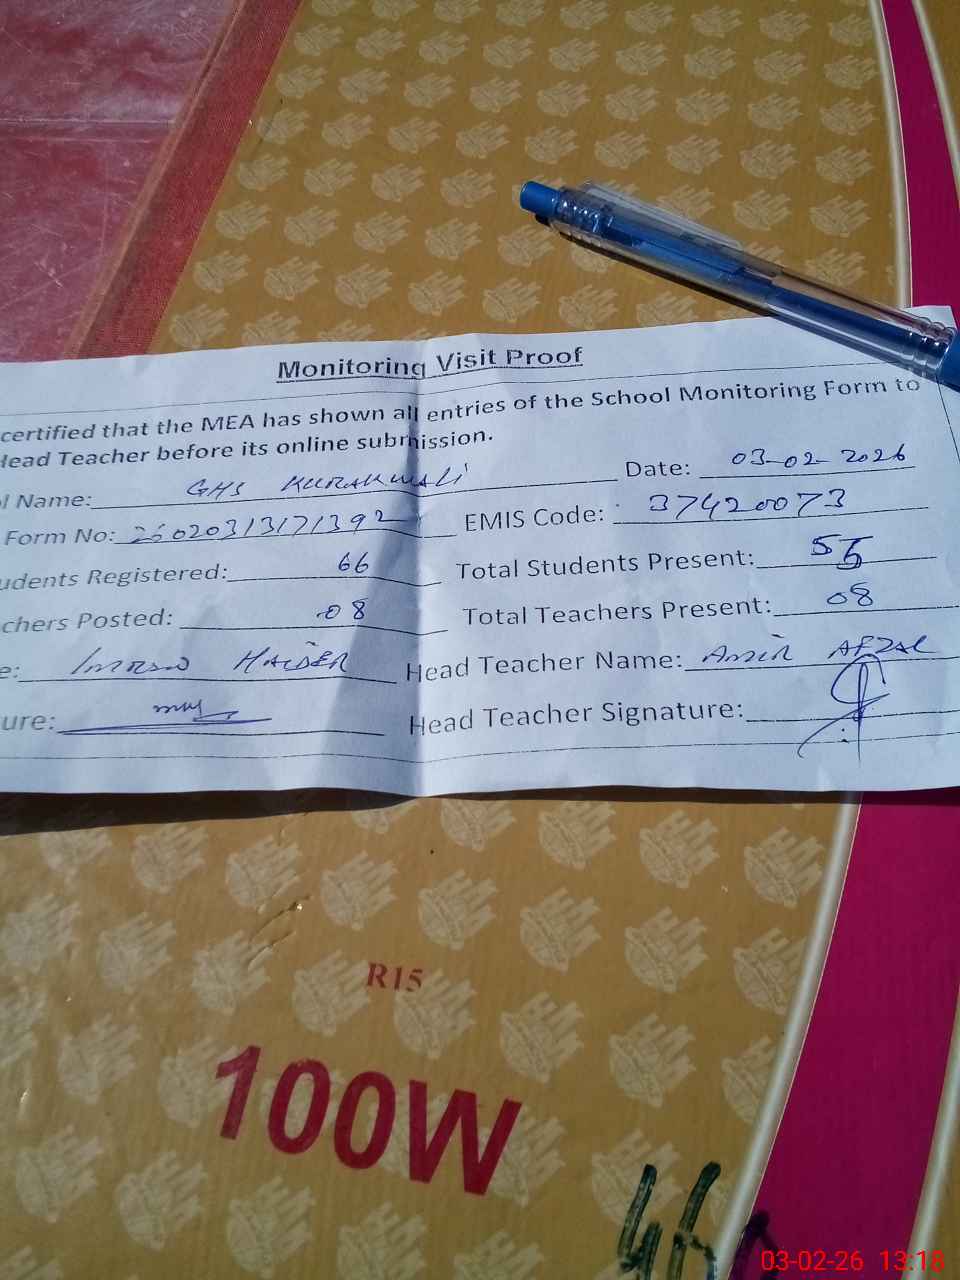 Monitoring Visit Proof
certified that the MEA has shown all entries of the School Monitoring Form to
Head Teacher before its online submission.
l Name: GHS KURAKWALI Date: 03-02-2026
Form No: 26020313171392 EMIS Code: 37420073
udents Registered: 66 Total Students Present: 55
chers Posted: 08 Total Teachers Present: 08
e: IMRAN HAIDER Head Teacher Name: AMIR AFZAL
ure: Head Teacher Signature:
R15
100W
46
03-02-26 13:18